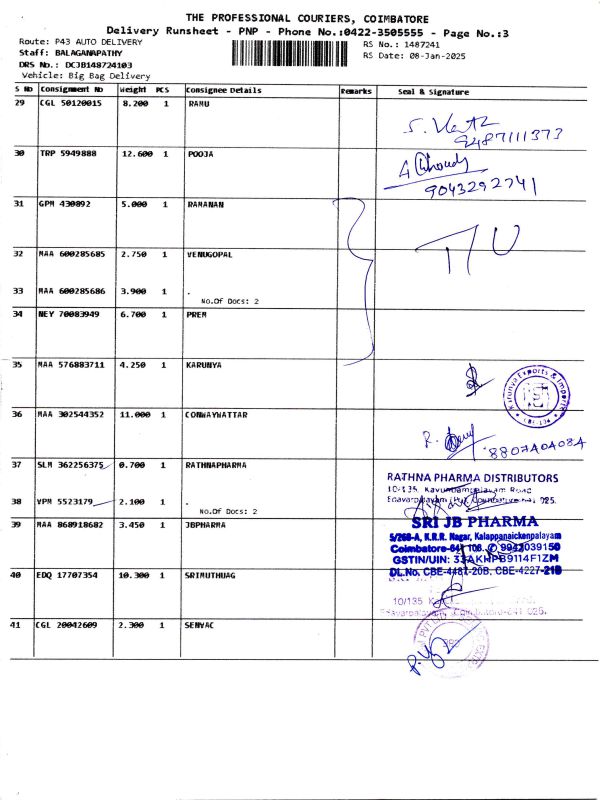 THE PROFESSIONAL COURIERS, COIMBATORE
Delivery Runsheet - PNP - Phone No.:0422-3505555 - Page No.:3
Route: P43 AUTO DELIVERY
RS No.: 1487241
Staff: BALAGANAPATHY
RS Date: 08-Jan-2025
DRS No.: DCJB148724103
Vehicle: Big Bag Delivery
S No Consignment No Weight PCS Consignee Details Remarks Seal & Signature
29 CGL 50120015 8.200 1 RAMU
9487111373
30 TRP 5949888 12.600 1 POOJA
9043292741
31 GPM 430892 5.000 1 RAMANAN
32 MAA 600285685 2.750 1 VENUGOPAL
33 MAA 600285686 3.900 1 .
No.Of Docs: 2
34 NEY 70083949 6.700 1 PREM
35 MAA 576883711 4.250 1 KARUNYA
Karunya Exports & Imports
36 MAA 302544352 11.000 1 CONWAYWATTAR
37 SLM 362256375 0.700 1 RATHNAPHARMA
RATHNA PHARMA DISTRIBUTORS
10/135, Kavundampalayam Road
38 VPM 5523179 2.100 1 .
No.Of Docs: 2
39 MAA 868918682 3.450 1 JBPHARMA
SRI JB PHARMA
5/268-A, K.R.R. Nagar, Kalappanaickenpalayam
Coimbatore-641 108. ✆ 9942039150
GSTIN/UIN: 33AKHPB9114F1ZM
DL.No. CBE-4487-20B, CBE-4227-21B
40 EDQ 17707354 10.300 1 SRIMUTHUAG
10/135
41 CGL 20042609 2.300 1 SENYAC